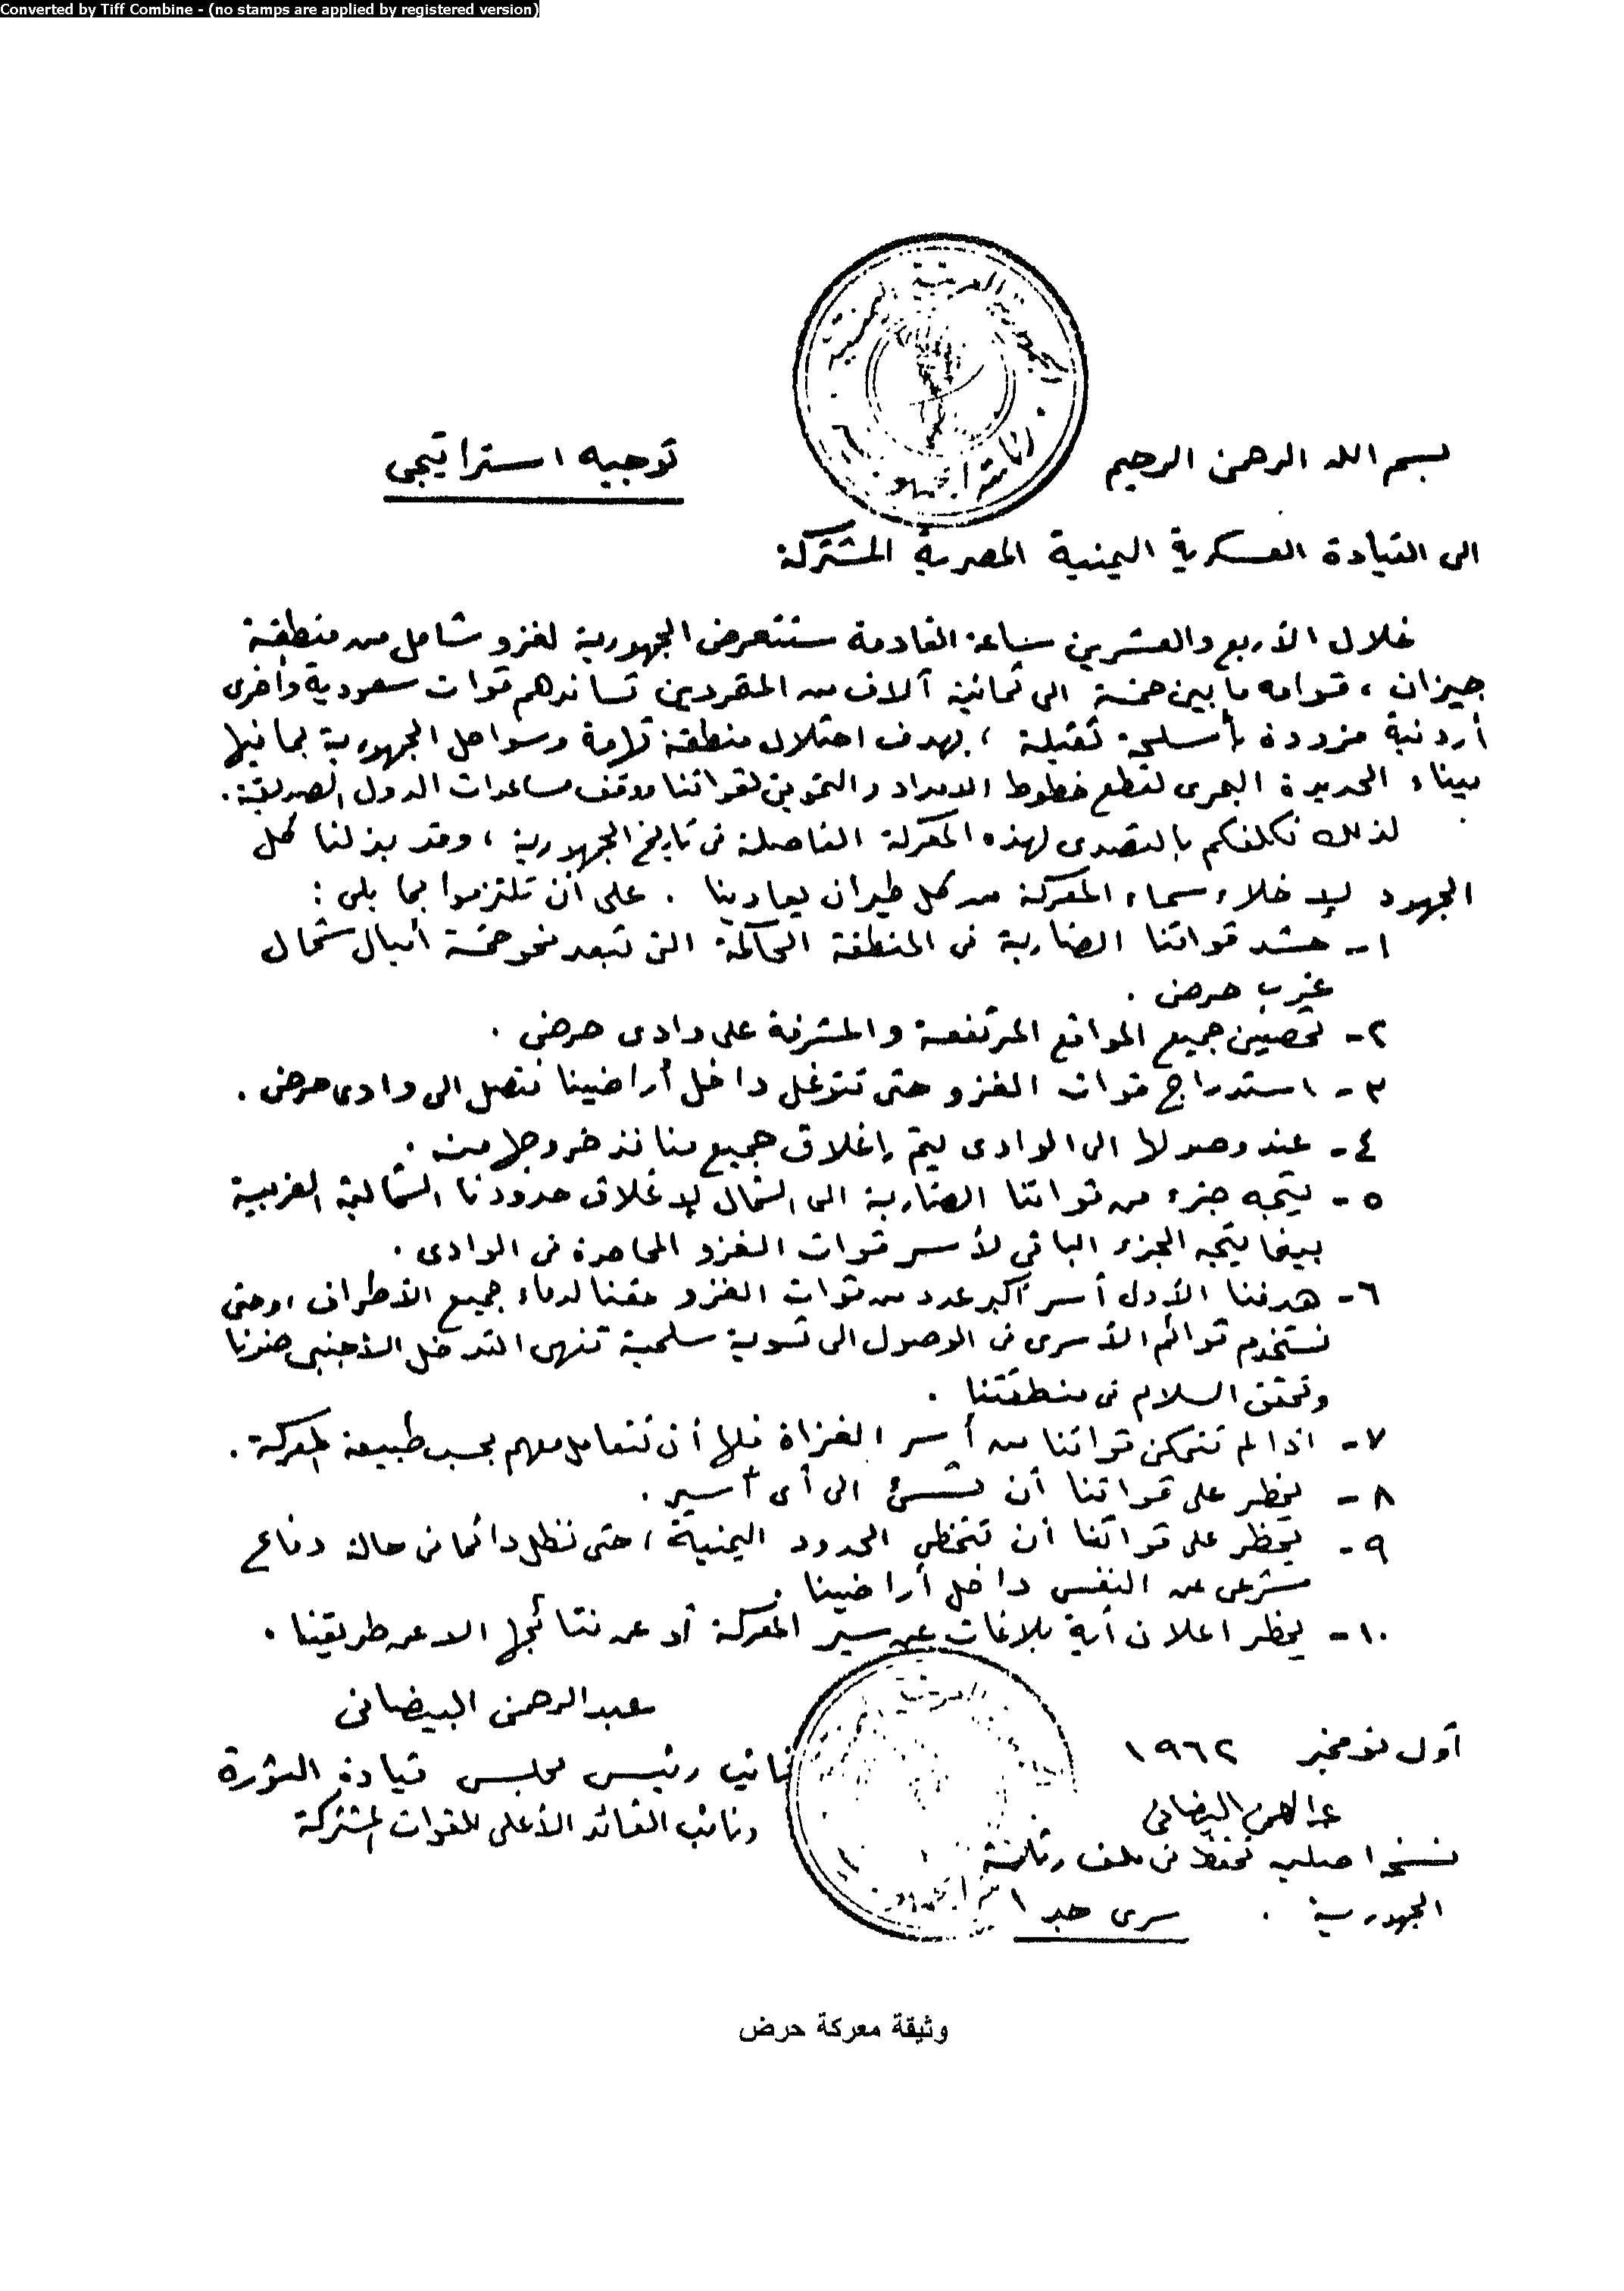 Converted by Tiff Combine - (no stamps are applied by registered version)
الجمهورية العربية اليمنية
رئاسة الجمهورية
بسم الله الرحمن الرحيم
توجيه استراتيجى
الى القيادة العسكرية اليمنية المصرية المشتركة
خلال الأربع والعشرين ساعة القادمة ستتعرض الجمهورية لغزو شامل من منطقة
جيزان ، قوامه ما بين خمسة الى ثمانية آلاف من المتمردين تساندهم قوات سعودية وأخرى
أردنية مزودة بأسلحة ثقيلة ، بهدف احتلال منطقة تهامة وسواحل الجمهورية بما فيها
ميناء الحديدة البحرى لقطع خطوط الامداد والتموين لقواتنا ووقف مساعدات الدول الصديقة .
لذلك نكلفكم بالتصدى لهذه المعركة الفاصلة فى تاريخ الجمهورية ، وقد بذلنا كل
الجهود لإخلاء سماء المعركة من كل طيران يعادينا . على أن تلتزموا بما يلى :
١- حشد قواتنا الضاربة فى المنطقة الحاكمة التى تبعد نحو خمسة أميال شمال
غرب حرض .
٢- تحصين جميع المواقع المرتفعة والمشرفة على وادى حرض .
٣- استدراج قوات الغزو حتى تتوغل داخل أراضينا فتصل الى وادى حرض .
٤- عند وصولها الى الوادى يتم إغلاق جميع منافذ خروجها منه .
٥- يتجه جزء من قواتنا الضاربة الى الشمال لإغلاق حدودنا الشمالية الغربية
بينما يتجه الجزء الباقي لأسر قوات الغزو المحاصرة فى الوادى .
٦- هدفنا الأول أسر أكبر عدد من قوات الغزو حقنا لدماء جميع الأطراف ، وحتى
نستخدم قوائم الأسرى فى الوصول الى تسوية سلمية تنهى التدخل الأجنبى ضدنا
وتحقق السلام فى منطقتنا .
٧- اذا لم تتمكن قواتنا من أسر الغزاة فلها أن تتعامل معهم بحسب طبيعة المعركة .
٨- يحظر على قواتنا أن تسئ الى أى أسير .
٩- يحظر على قواتنا أن تتخطى الحدود اليمنية ، حتى نظل دائما فى حالة دفاع
شرعى عن النفس داخل أراضينا .
١٠- يحظر اعلان أية بلاغات عن سير المعركة أو عن نتائجها الا عن طريقنا .
عبدالرحمن البيضانى
أول نوفمبر ١٩٦٢
نائب رئيس مجلس قيادة الثورة
عبدالرحمن البيضانى
ونائب القائد الأعلى للقوات المشتركة
نسخة اصلية تحفظ فى ملف رئاسة
الجمهورية . سرى جدا
وثيقة معركة حرض